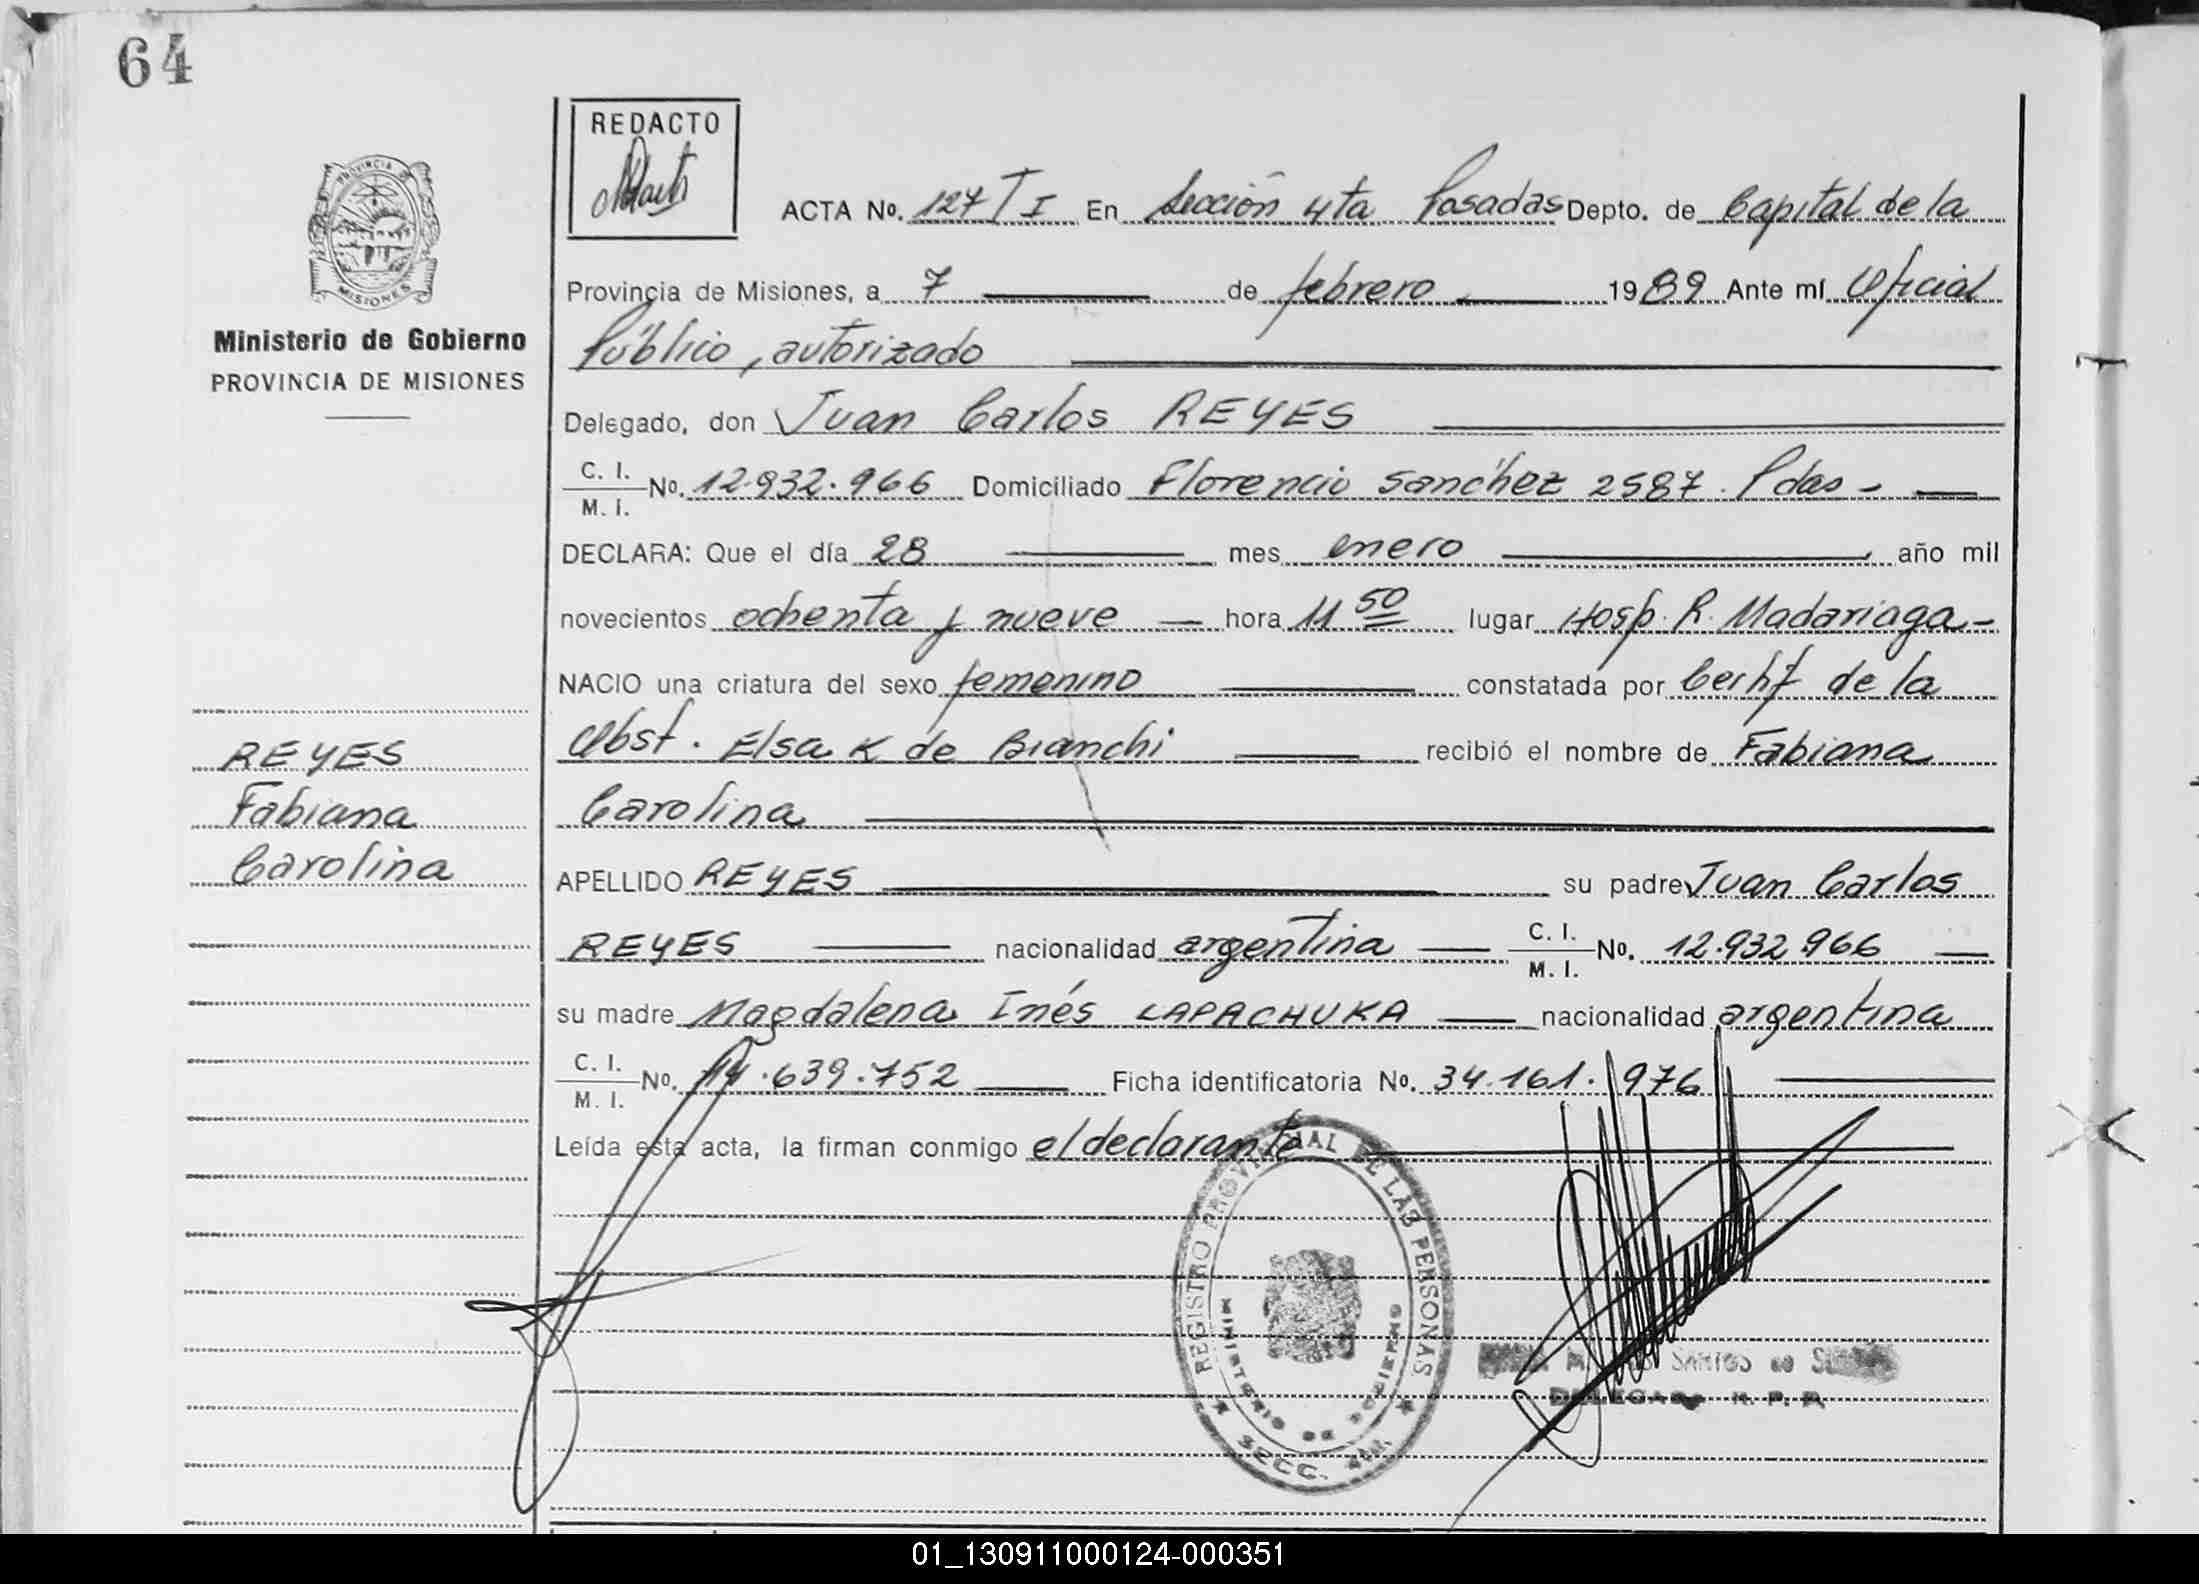 64
REDACTO
PROVINCIA DE
MISIONES
Ministerio de Gobierno
PROVINCIA DE MISIONES
ACTA No. 127 T I En Sección 4ta Posadas Depto. de Capital de la
Provincia de Misiones, a 7 de febrero 1989 Ante mí Oficial
Público, autorizado
Delegado, don Juan Carlos REYES
C. I.
M. I. No. 12.932.966 Domiciliado Florencio Sanchez 2587. Pdas -
DECLARA: Que el día 28 mes enero año mil
novecientos ochenta y nueve — hora 11 50 lugar Hosp. R. Madariaga -
NACIO una criatura del sexo femenino constatada por Certif de la
Obst. Elsa K de Bianchi recibió el nombre de Fabiana
Carolina
REYES
Fabiana
Carolina
APELLIDO REYES su padre Juan Carlos
REYES nacionalidad argentina C. I.
M. I. No. 12.932.966
su madre Magdalena Inés LAPACHUKA nacionalidad argentina
C. I.
M. I. No. 14.639.752 Ficha identificatoria No. 34.161.976
Leída esta acta, la firman conmigo el declarante
REGISTRO PROVINCIAL DE LAS PERSONAS
MINISTERIO DE GOBIERNO
SECC.
SANTOS de
DELEGADA R. P. P.
01_130911000124-000351